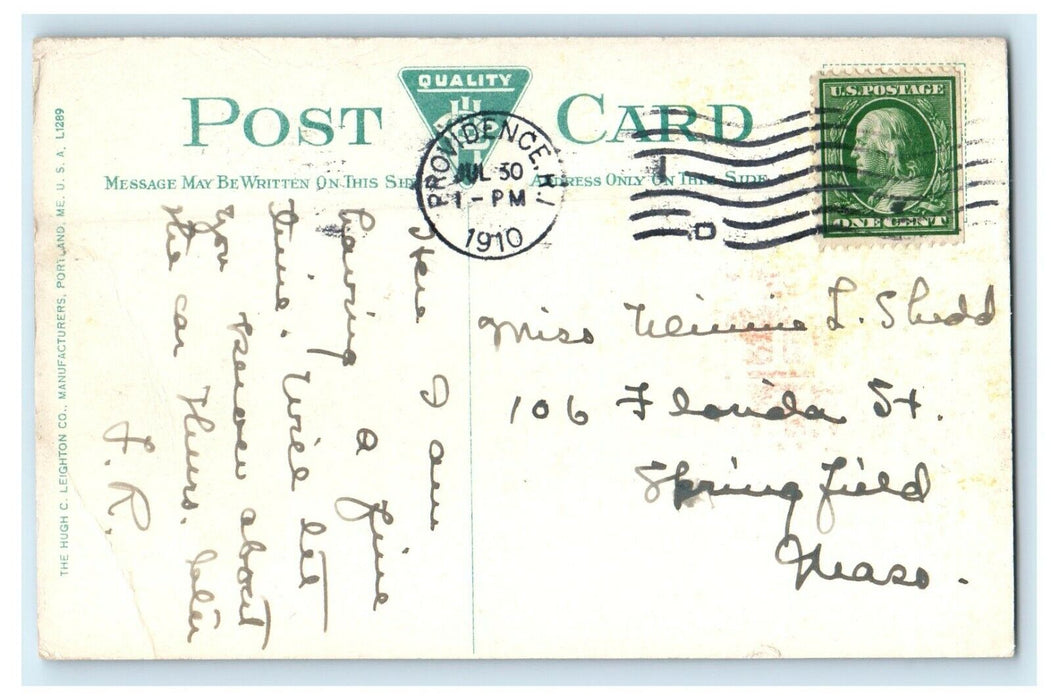 POST CARD
QUALITY
MESSAGE MAY BE WRITTEN ON THIS SIDE
ADDRESS ONLY ON THIS SIDE
PROVIDENCE, R.I.
JUL 30
1 - PM
1910
D
U.S. POSTAGE
ONE CENT
THE HUGH C. LEIGHTON CO., MANUFACTURERS, PORTLAND, ME. U. S. A. L1289
Here I am
having a fine
time. Will let
you know about
the car Thurs. later
F. R.
Miss Minnie L. Shedd
106 Florida St.
Springfield
Mass.